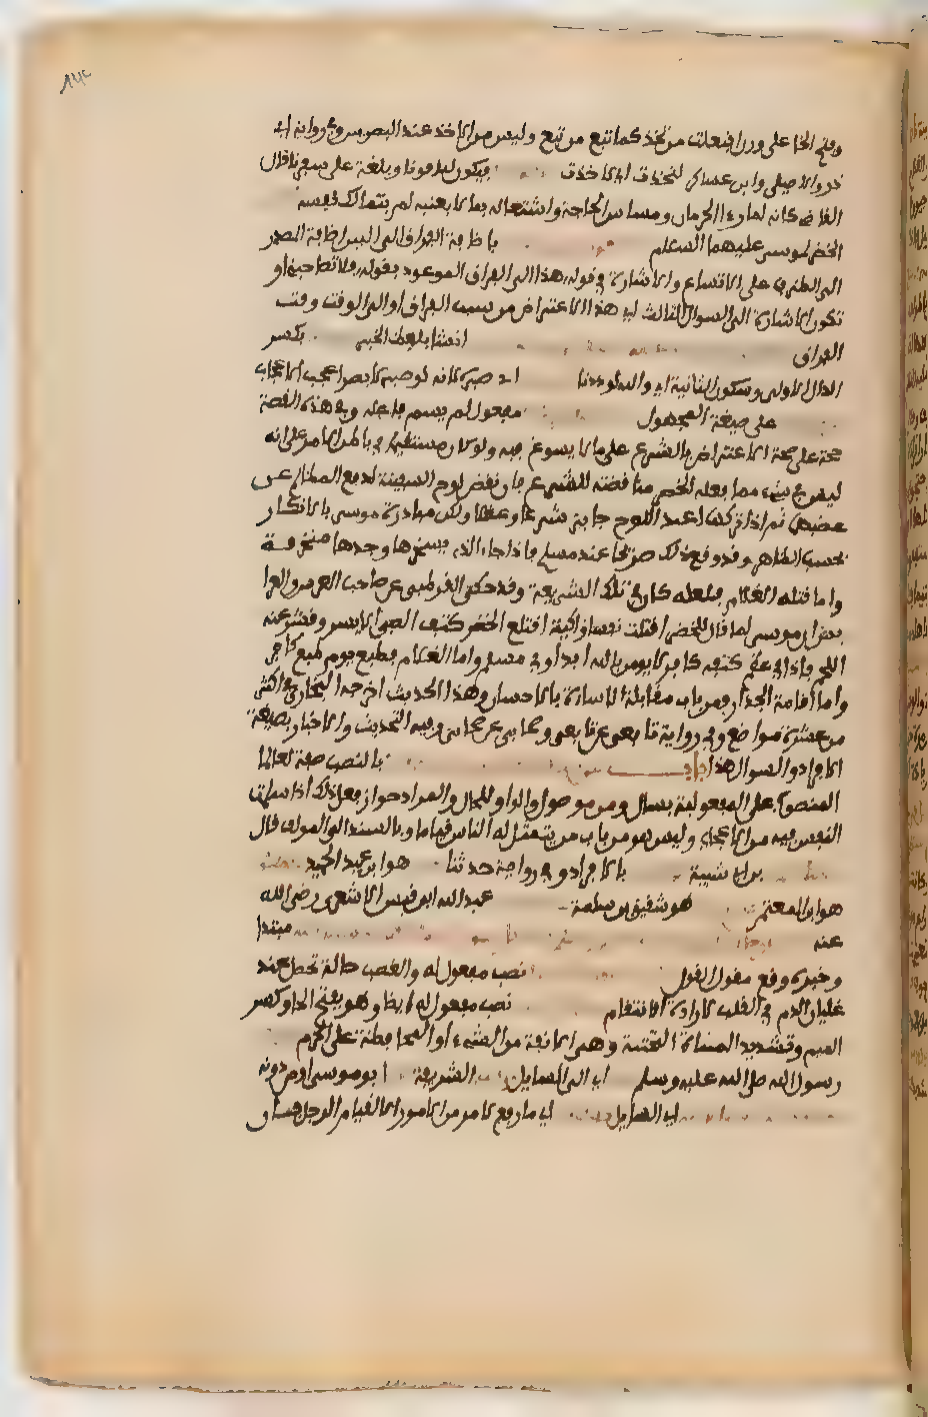 وفتح الخا على وزن افتعلت من تخذ كما تبع من تبع وليس من الاخذ عند البصريين وفي رواية ابي
ذر والاصيلي وابن عساكر لتخذت اي لاخذت فيكون لنا قوتا وبلغة على سفرنا قال
القاضي كانه لما رءا الحرمان ومساس الحاجة واشتغاله بما لا يعنيه لم يتمالك نفسه
الخضر لموسى عليهما السلام باضافة الفراق الى البين اضافة المصدر
الى الظرف على الاتساع والاشارة في قوله هذا الى الفراق الموعود بقوله فلا تصاحبني او
تكون الاشارة الى السوال الثالث اي هذا الاعتراض سبب الفراق او الى الوقت اي هذا الوقت وقت
الفراق انشا بلفظ الخبر بكسر
الدال الاولى وسكون الثانية اي والله لوددنا اي صبره لانه لو صبر لابصر اعجب الاعاجيب
على صيغة المجهول مفعول لم يسم فاعله وفي هذه القصة
حجة على صحة الاعتراض بالشرع على ما لا يسوغ فيه ولو كان مستقيما في باطن الامر على انه
ليس في شيء مما فعله الخضر مناقضة للشرع فان نقض لوح السفينة لدفع الظالم عن
غصبها ثم اذا تركها اعيد اللوح جايز شرعا وعقلا ولكن مبادرة موسى بالانكار
بحسب الظاهر وقد وقع ذلك صريحا عند مسلم فاذا جاء الذي يسخرها وجدها منخرقة
واما قتله الغلام فلعله كان في تلك الشريعة وقد حكى القرطبي عن صاحب العرس والعرا
يس ان موسى لما قال للخضر اقتلت نفسا زاكية اقتلع الخضر كتف الصبي الايسر وقشر عنه
اللحم فاذا في عظم كتفه كافر لا يومن بالله ابدا وفي مسلم واما الغلام فطبع يوم طبع كافرا
واما اقامة الجدار فمن باب مقابلة الاساءة بالاحسان وهذا الحديث اخرجه البخاري في اكثر
من عشرة مواضع وفي رواية تابعي عن تابعي وصحابي عن صحابي وفيه التحديث والاخبار بصيغة
الافراد والسوال هذا باب بالنصب صفة لعالما
المنصوب على المفعولية بسال ومن موصول والواو للحال والمراد جواز فعل ذلك اذا سلمت
النفس فيه من الاعجاب وليس هو من باب من يتمثل له الناس قياما وبالسند الى المولف قال
بن ابي شيبة بالافراد وفي رواية حدثنا هو ابن عبد الحميد
هو ابن المعتمر هو شقيق بن سلمة عبد الله ابن قيس الاشعري رضي الله
عنه مبتدا
وخبره وقع مقول القول نصب مفعول له والغضب حالة تحصل عند
غليان الدم في القلب لارادة الانتقام نصب مفعول له ايضا وهو بفتح الحا وكسر
الميم وتشديد المثناة التحتية وهي الانفة من الشيء او المحافظة على الحرم
رسول الله صلى الله عليه وسلم اي الى السايل الشريفة ابو موسى او من دونه
اي السايل اي ما رفع لامر من الامور الا لقيام الرجل فان